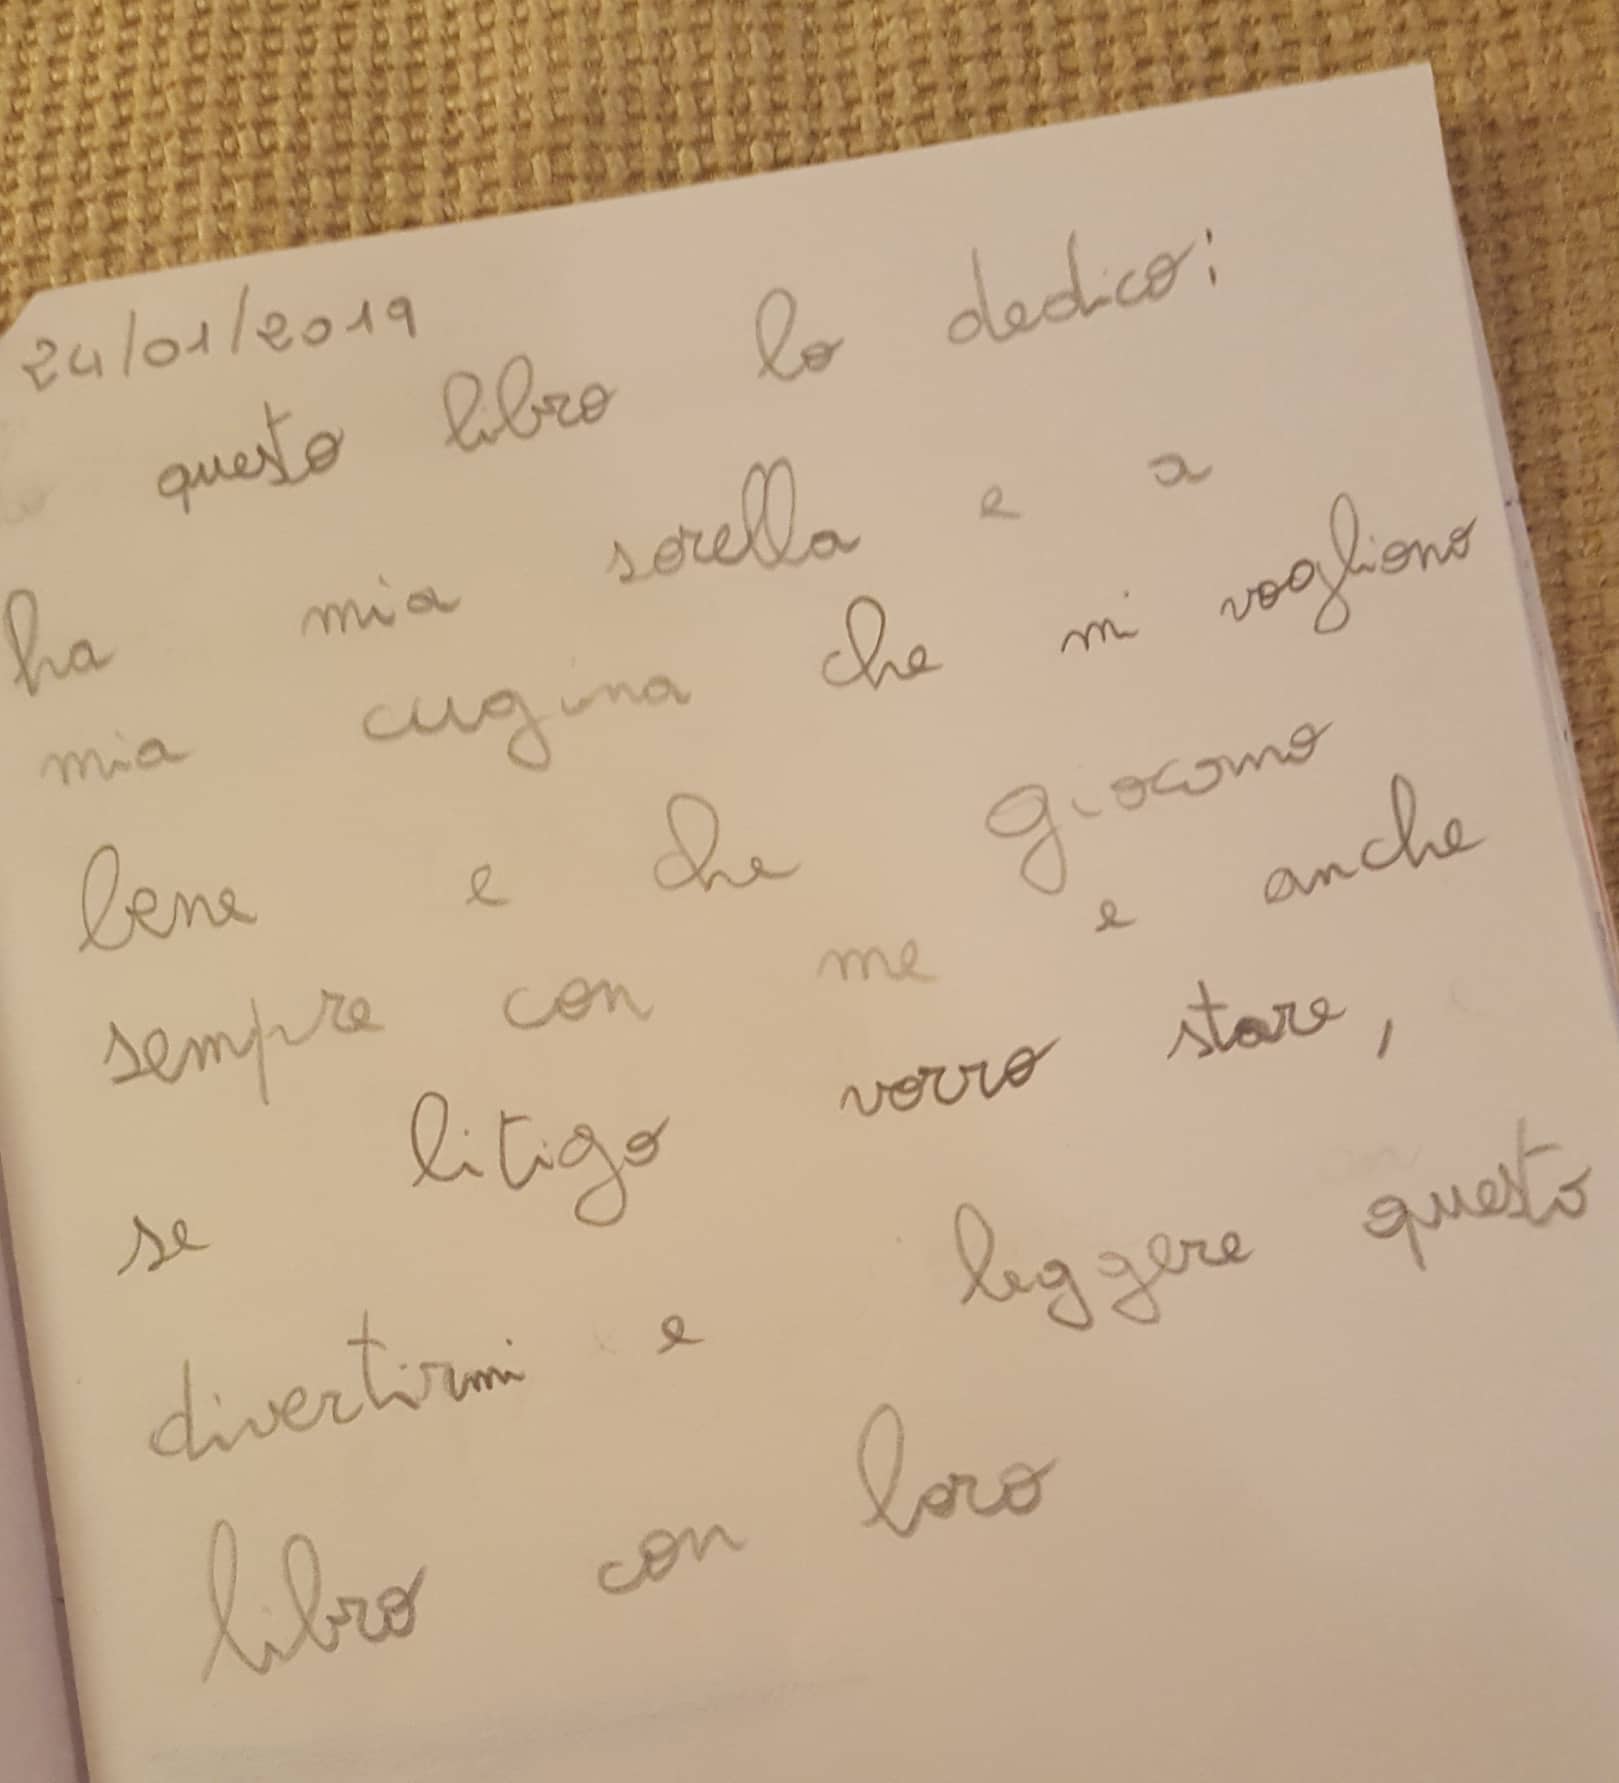 24/01/2019
questo libro lo dedico:
ha mia sorella e a
mia cugina che mi vogliono
bene e che giocomo
sempre con me e anche
se litigo vorro stare,
divertirmi e leggere questo
libro con loro